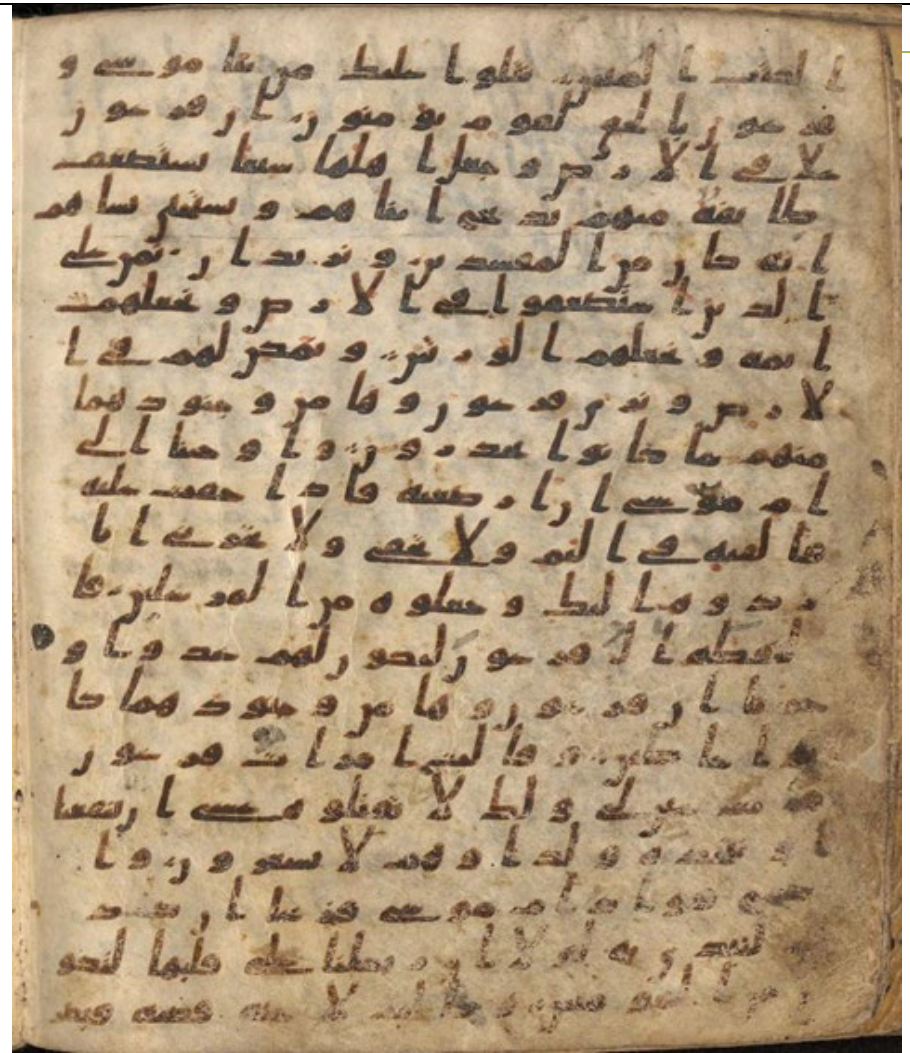 الكتب المبين نتلوا عليك من نبا موسى و
فرعون بالحق لقوم يومنون ان فرعون
علا في الارض وجعل اهلها شيعا يستضعف
طائفة منهم يذبح ابناهم ويستحي نساهم
انه كان من المفسدين ونريد ان نمن على
الذين استضعفوا في الارض ونجعلهم
ائمة ونجعلهم الورثين ونمكن لهم في ا
لارض ونري فرعون وهامن وجنودهما
منهم ما كانوا يحذرون واوحينا الى
ام موسى ان ارضعيه فاذا خفت عليه
فالقيه في اليم ولا تخفي ولا تحزني انا
ردوه اليك وجعلوه من المرسلين فا
لتقطه ال فرعون ليكون لهم عدوا و
حزنا ان فرعون وهامن وجنودهما كا
نوا خطين وقالت امرات فرعون
قرت عين لي ولك لا تقتلوه عسى ان ينفعنا
او نتخذه ولدا وهم لا يشعرون وا
صبح فواد ام موسى فرغا ان كادت
لتبدي به لولا ان ربطنا على قلبها لتكو
ن من المومنين وقالت لاخته قصيه فبصر